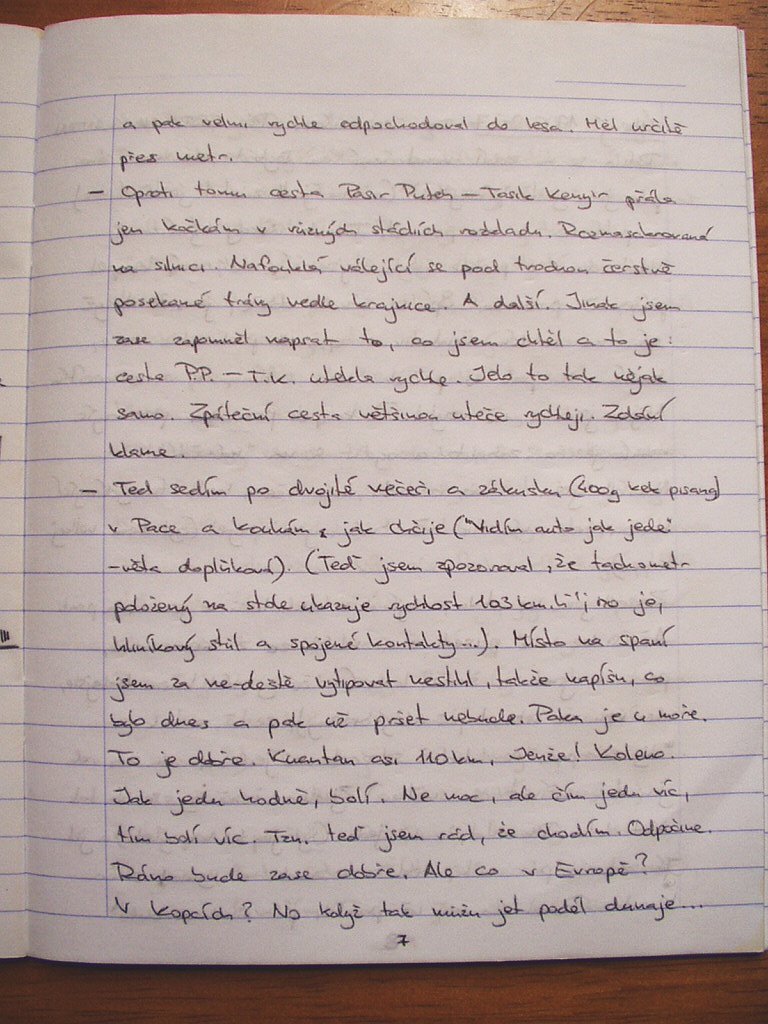 a pak velmi rychle odpochodoval do lesa. Měl určitě
přes metr.
– Oproti tomu cesta Pasir Puteh – Tasik Kenyir přála
jen kočkám v různých stádiích rozkladu. Rozmasakrovaná
na silnici. Nafouklá válející se pod trochou čerstvě
posekané trávy vedle krajnice. A další. Jinak jsem
zase zapomněl napsat to, co jsem chtěl a to je:
cesta P.P. – T.K. utekla rychle. Jelo to tak nějak
samo. Zpáteční cesta většinou uteče rychleji. Zdání
klame.
– Teď sedím po dvojité večeři a zákusku (400g kek pisang)
v Pace a koukám, jak chčije ("Vidím auto jak jede"
-věta doplňková). (Teď jsem zpozoroval, že tachometr
položený na stole ukazuje rychlost 103 km.h⁻¹; no je,
hliníkový stůl a spojené kontakty...). Místo na spaní
jsem za ne-deště vytipovat nestihl, takže napíšu, co
bylo dnes a pak už pršet nebude. Paka je u moře.
To je dobře. Kuantan asi 110 km. Jenže! Koleno.
Jak jedu hodně, bolí. Ne moc, ale čím jedu víc,
tím bolí víc. Tzn. teď jsem rád, že chodím. Odpočine.
Ráno bude zase dobře. Ale co v Evropě?
V kopcích? No když tak můžu jet podél dunaje...
7